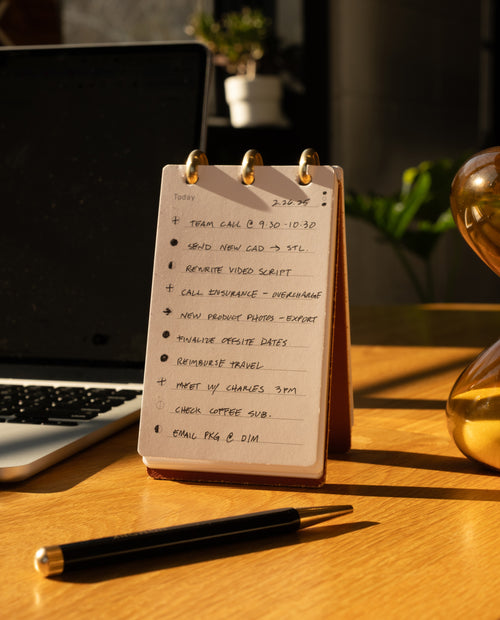 Today
2.26.25
TEAM CALL @ 9:30-10:30
SEND NEW CAD → STL.
REWRITE VIDEO SCRIPT
CALL INSURANCE - OVERCHARGE
NEW PRODUCT PHOTOS - EXPORT
FINALIZE OFFSITE DATES
REIMBURSE TRAVEL
MEET W/ CHARLES 3PM
CHECK COFFEE SUB.
EMAIL PKG @ DIM